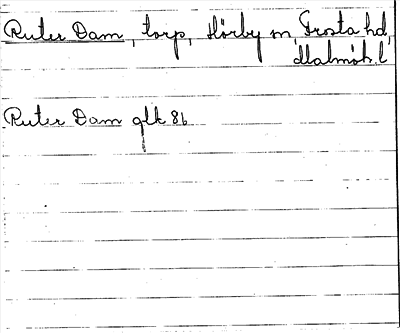 Ruter Dam, torp, Hörby sn, Frosta hd,
Malmöh. l
Ruter Dam glk 86